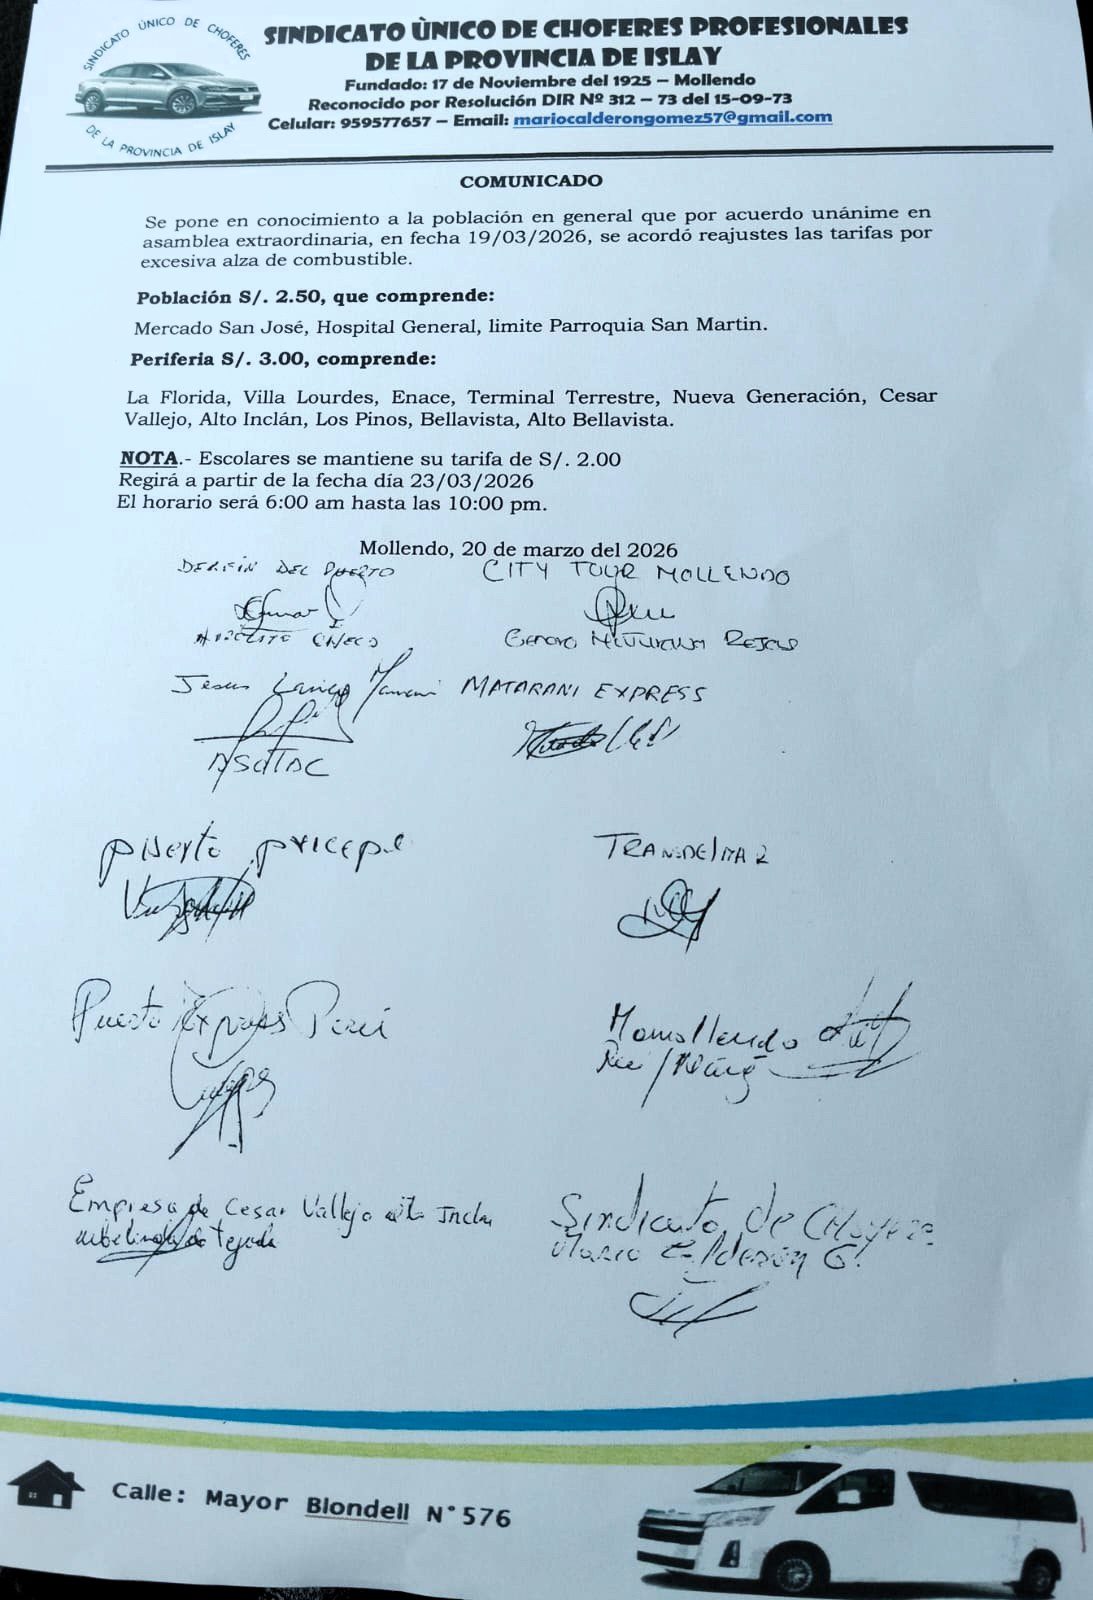 SINDICATO ÙNICO DE CHOFERES
DE LA PROVINCIA DE ISLAY
SINDICATO ÙNICO DE CHOFERES PROFESIONALES
DE LA PROVINCIA DE ISLAY
Fundado: 17 de Noviembre del 1925 – Mollendo
Reconocido por Resolución DIR Nº 312 – 73 del 15-09-73
Celular: 959577657 – Email: mariocalderongomez57@gmail.com
COMUNICADO
Se pone en conocimiento a la población en general que por acuerdo unánime en
asamblea extraordinaria, en fecha 19/03/2026, se acordó reajustes las tarifas por
excesiva alza de combustible.
Población S/. 2.50, que comprende:
Mercado San José, Hospital General, limite Parroquia San Martin.
Periferia S/. 3.00, comprende:
La Florida, Villa Lourdes, Enace, Terminal Terrestre, Nueva Generación, Cesar
Vallejo, Alto Inclán, Los Pinos, Bellavista, Alto Bellavista.
NOTA.- Escolares se mantiene su tarifa de S/. 2.00
Regirá a partir de la fecha día 23/03/2026
El horario será 6:00 am hasta las 10:00 pm.
Mollendo, 20 de marzo del 2026
DEL PUERTO
CITY TOUR MOLLENDO
Jesus
MATARANI EXPRESS
puerto
Puerto Express Perú
Empresa de Cesar Vallejo
Tejada
Sindicato de
Mario Calderón G.
Calle: Mayor Blondell N°576